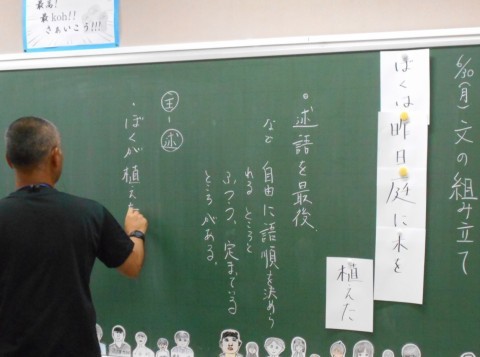 最高!
最koh!!
さぁいこう!!!
6/30(月) 文の組み立て
ぼくは昨日庭に木を
植んた
・述語を最後
など 自由に語順を決めら
れるところと
ふつう、定まっている
ところがある。
主-述
・ぼくが植えた